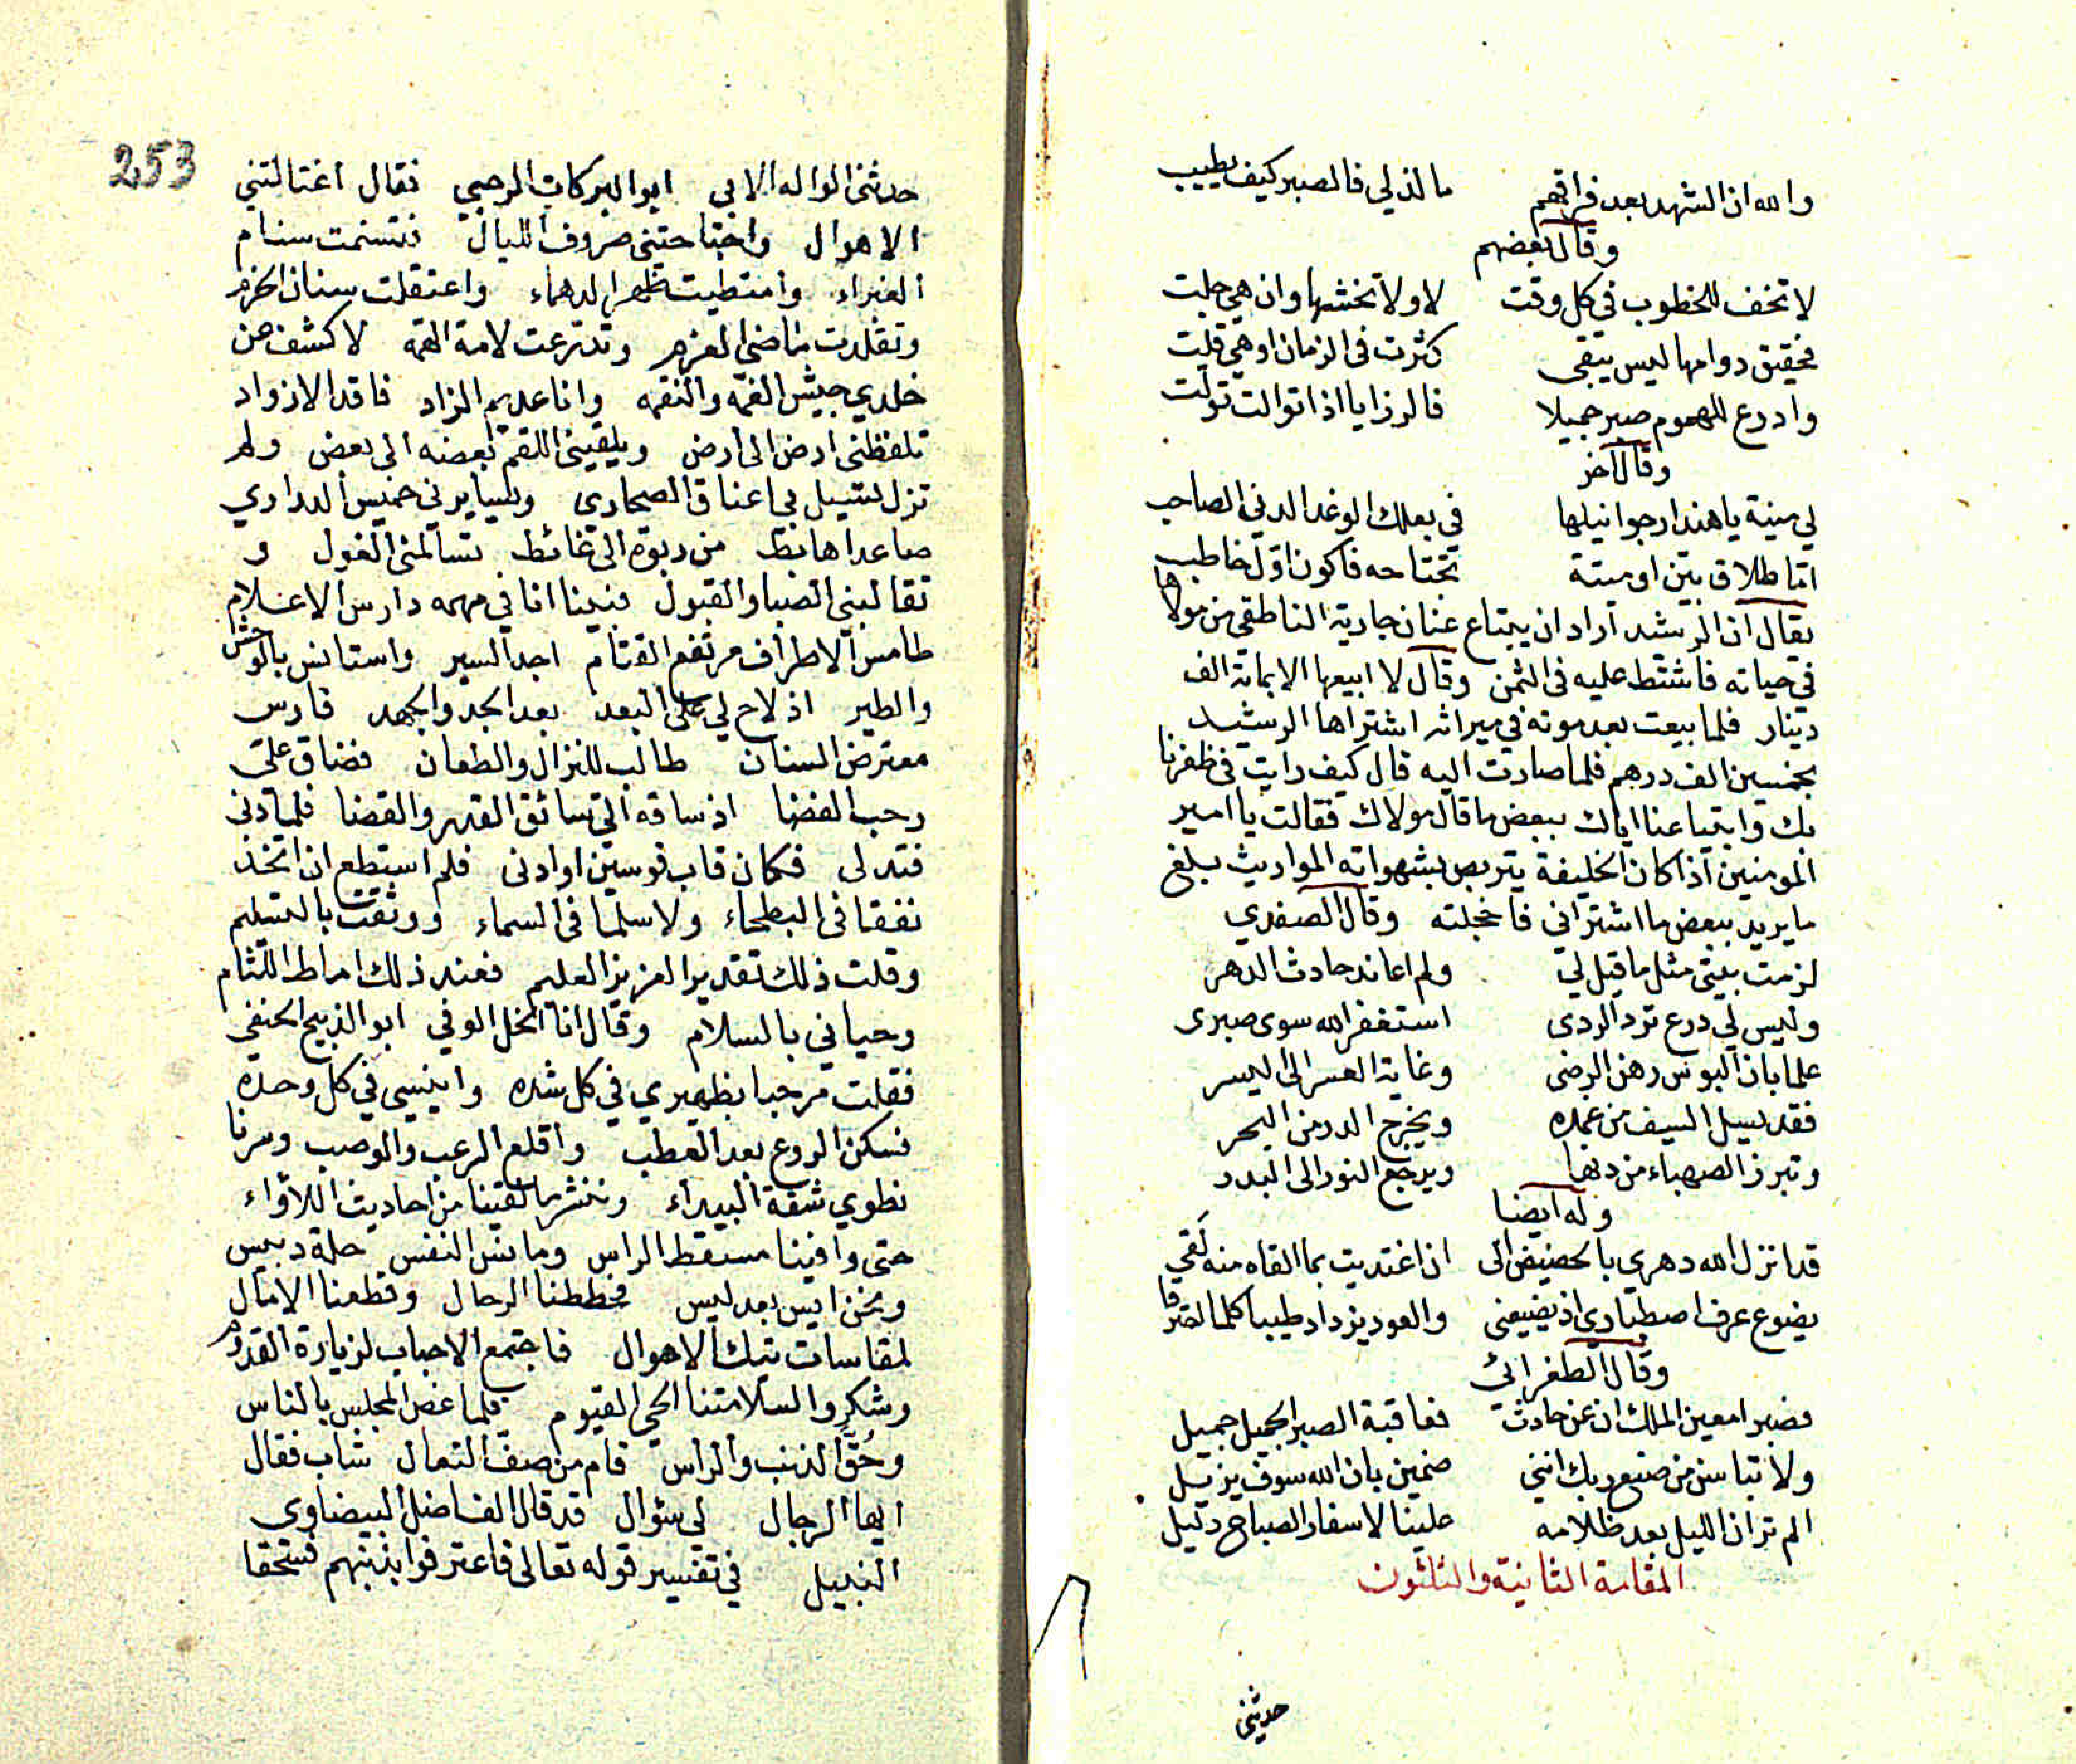 والله ان الشهد بعد فراقهم ما لذ لي فالصبر كيف يطيب
وقال بعضهم
لا تخف للخطوب في كل وقت لا ولا تخشها وان هي جلت
فحقيق دوامها ليس يبقى كثرت في الزمان او هي قلت
وادرع للهموم صبر جميلا فالرزايا اذا توالت تولت
وقال آخر
لي منية يا هند ارجوا نيلها في بعلك الوغد الدني الصاحب
اما طلاق بين او ميتة تجتاحه فاكون اول خاطب
يقال ان الرشيد اراد ان يبتاع عنان جارية الناطقي من مولاها
في حياته فاشتط عليه في الثمن وقال لا ابيعها الا بماية الف
دينار فلما بيعت بعد موته في ميراثه اشتراها الرشيد
بخمسين الف درهم فلما صارت اليه قال كيف رايت في ظفرنا
بك وابتياعنا اياك ببعض ما قال مولاك فقالت يا امير
المومنين اذا كان الخليفة يتربص بشهواته المواريث بلغ
ما يريد ببعض ما اشتراني فاخجلته وقال الصفدي
لزمت بيتي مثل ما قيل لي ولم اعاند حادث الدهر
وليس لي درع ترد الردى استغفر الله سوى صبرى
علما بان البوس رهن الرضى وغاية العسر الى اليسر
فقد يسل السيف من غمده ويخرج الدر من البحر
وتبرز الصهباء من دنها ويرجع النور الى البدر
وله ايضا
قد انزل الله دهرى بالحضيض الى ان اغتديت بما القاه منه لقي
يضوع عرف اصطبارى اذ يضيعنى والعود يزداد طيبا كلما احترقا
وقال الطغرائي
فصبرا معين الملك ان عن حادث فعاقبة الصبر الجميل جميل
ولا تياسن من صنع ربك انني ضمين بان الله سوف يزيل
الم تر ان الليل بعد ظلامه علينا لاسفار الصباح دليل
المقامة الثانية والثلثون
حدثني
253
حدثني الواله الابي ابو البركات الرحبي فقال اغتالتني
الاهوال واجتاحتني صروف الليال فتسنمت سنام
الغبراء وامتطيت ظهر الدهماء واعتقلت سنان الحزم
وتقلدت ماضي العزم وتدرعت لامة الهمه لاكشف عن
خلدي جيش الغمه والنقمه وانا عديم الزاد فاقد الازواد
تلفظني ارض الى ارض ويلقيني اللقم بعضه الى بعض ولم
تزل تسيل بي اعناق الصحارى ويسايرني خميس الدراري
صاعدا هابط من ربوة الى غائط تسالمني الغول و
تقالبني الصبا والقبول فبينا انا في مهمه دارس الاعلام
طامس الاطراف مرتفع القتام اجد السير واستانس بالوحش
والطير اذ لاح لي على البعد بعد الجد والجهد فارس
معترض السنان طالب للنزال والطعان فضاق علي
رحب الفضا اذ ساقه الي سائق القهر والقضا فلما دنى
فتدلى فكان قاب قوسين او ادنى فلم استطع ان اتخذ
نفقا في البطحاء ولا سلما في السماء ووثقت بالتسليم
وقلت ذلك تقدير العزيز العليم فعند ذلك اماط اللثام
وحياني بالسلام وقال انا الخل الوفي ابو الذبيح الحنفي
فقلت مرحبا بظهيري في كل شده وانيسي في كل وحده
فسكن الروع بعد العطب واقلع الرعب والوصب وسرنا
نطوي شقة البيداء وننشر ما لقينا من احاديث اللأواء
حتى وافينا مسقط الراس ومانس النفس حلة دبيس
ونحن ايس بعد ليس فحططنا الرحال وقطعنا الامال
لمقاسات تيك الاهوال فاجتمع الاحباب لزيارة القدوم
وشكروا لسلامتنا الحي القيوم فلما غص المجلس بالناس
وحُقَّ الذنب والراس قام من صف النعال شاب فقال
ايها الرجال لي سؤال قد قال الفاضل البيضاوى
النبيل في تفسير قوله تعالى فاعترفوا بذنبهم فسحقا